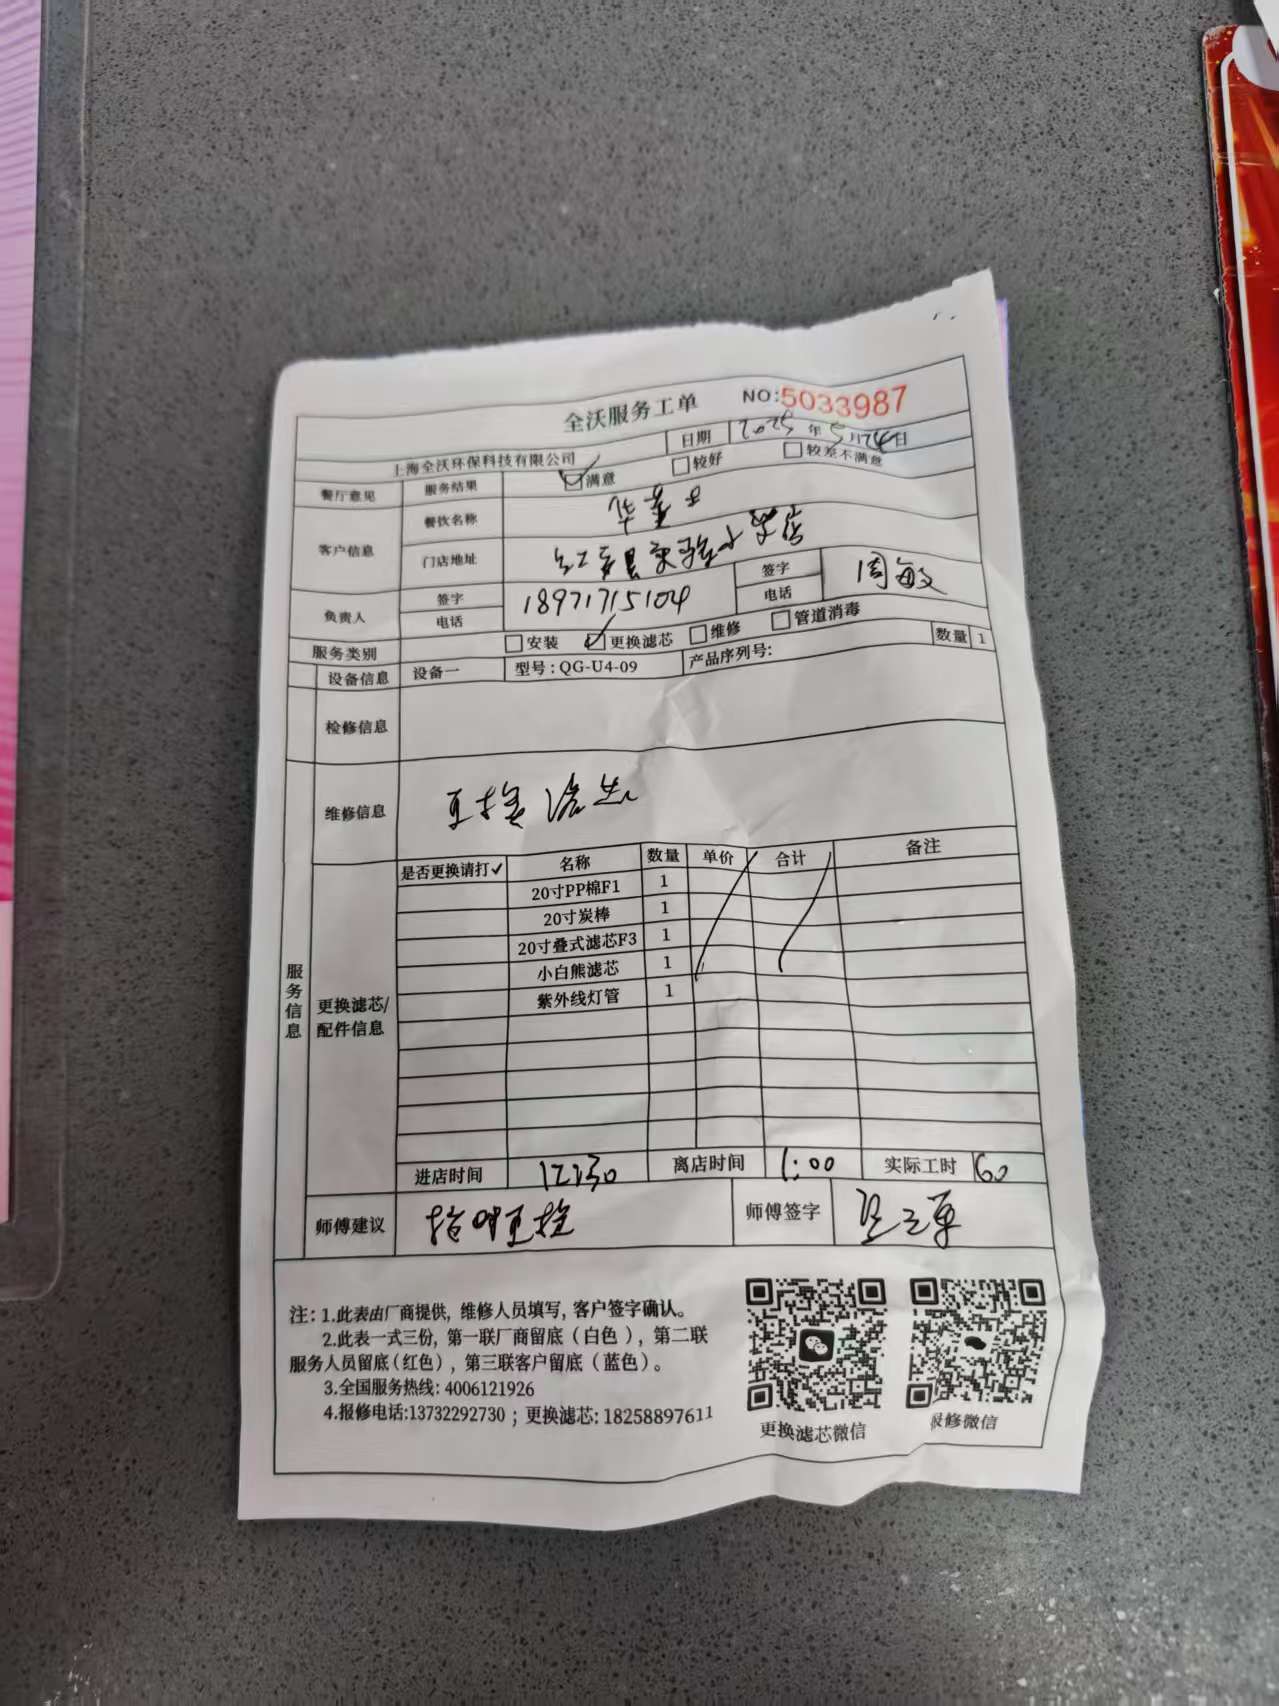 全沃服务工单 NO:5033987
上海全沃环保科技有限公司 日期 2025年5月24日
餐厅意见 服务结果 满意 较好 较差不满意
客户信息 餐饮名称 华莱士
门店地址
负责人 签字 电话 18971715104 签字 电话 周敏
服务类别 安装 更换滤芯 维修 管道消毒
设备信息 设备一 型号:QG-U4-09 产品序列号: 数量 1
检修信息
维修信息 更换滤芯
服务信息
更换滤芯/
配件信息
是否更换请打✓ 名称 数量 单价 合计 备注
20寸PP棉F1 1
20寸炭棒 1
20寸叠式滤芯F3 1
小白熊滤芯 1
紫外线灯管 1
进店时间 12:30 离店时间 1:00 实际工时 60
师傅建议 按时更换 师傅签字
注:1.此表由厂商提供,维修人员填写,客户签字确认。
2.此表一式三份,第一联厂商留底(白色),第二联
服务人员留底(红色),第三联客户留底(蓝色)。
3.全国服务热线:4006121926
4.报修电话:13732292730;更换滤芯:18258897611
更换滤芯微信 报修微信